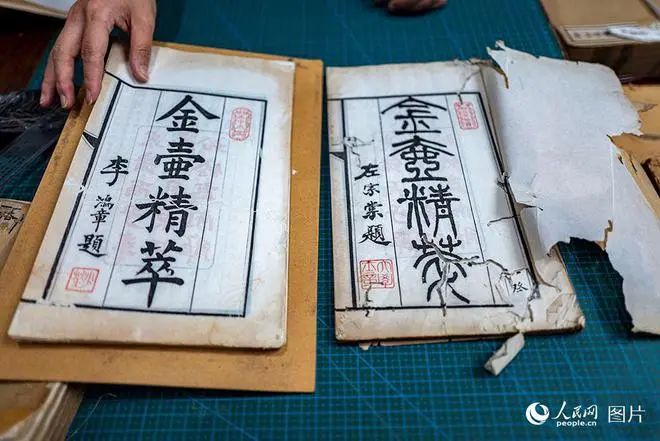 金壺精萃
李鴻章題
金壺精萃
左宗棠題
人民网 图片
people.cn